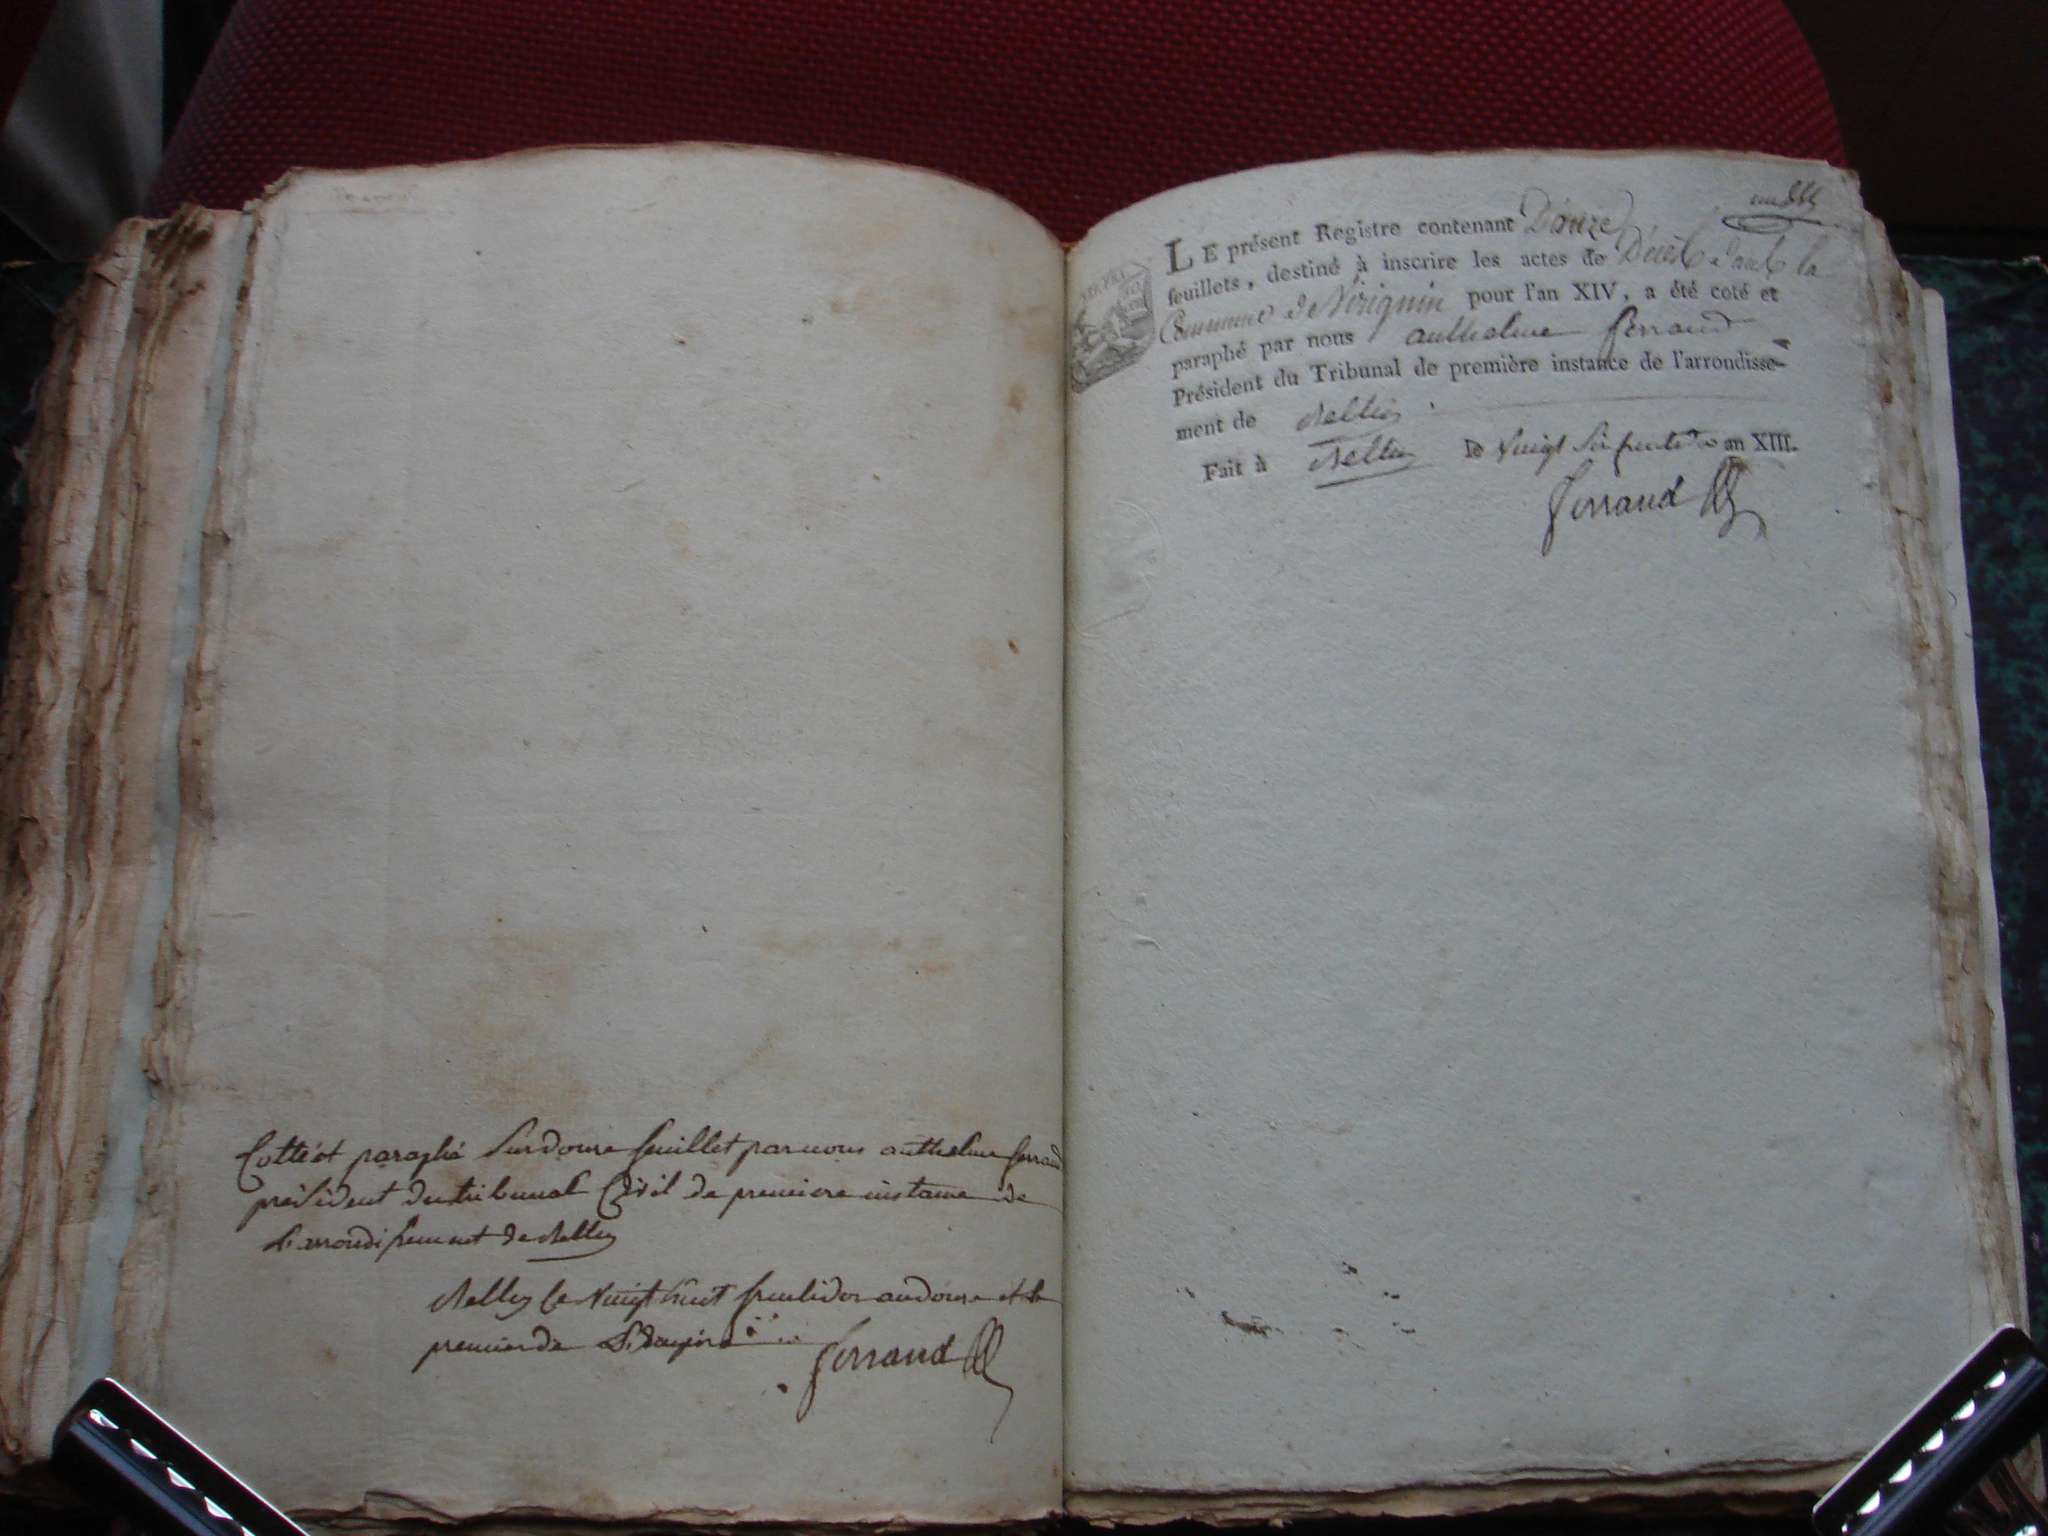 Cotté et paraphé Sur douze feuillet par nous anthelme ferrand
président du tribunal Civil de premiere instance de
L'arrondissement de Belley
Belley le vingt huit fructidor an douze et le
premier de
ferrand
LE présent Registre contenant Douze
feuillets, destiné à inscrire les actes de Décès dans la
Commune de Virignin pour l'an XIV, a été coté et
paraphé par nous anthelme ferrand
Président du Tribunal de première instance de l'arrondisse-
ment de Belley
Fait à Belley le vingt an XIII.
ferrand